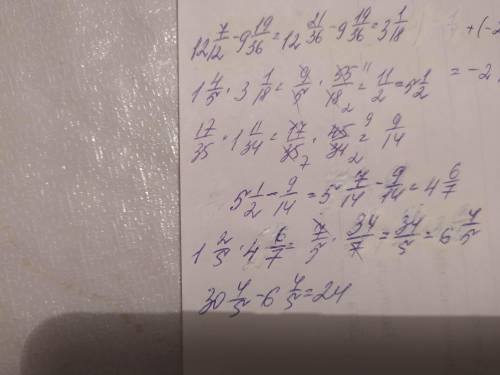 12 7/12 - 9 19/36 = 12 21/36 - 9 19/36 = 3 1/18
1 4/5 · 3 1/18 = 9/5 · 55/18 = 11/2 = 5 1/2
17/35 · 1 11/34 = 17/35 · 45/34 = 9/14
5 1/2 - 9/14 = 5 7/14 - 9/14 = 4 6/7
1 2/5 · 4 6/7 = 7/5 · 34/7 = 34/5 = 6 4/5
30 4/5 - 6 4/5 = 24
+ (-2
= -2